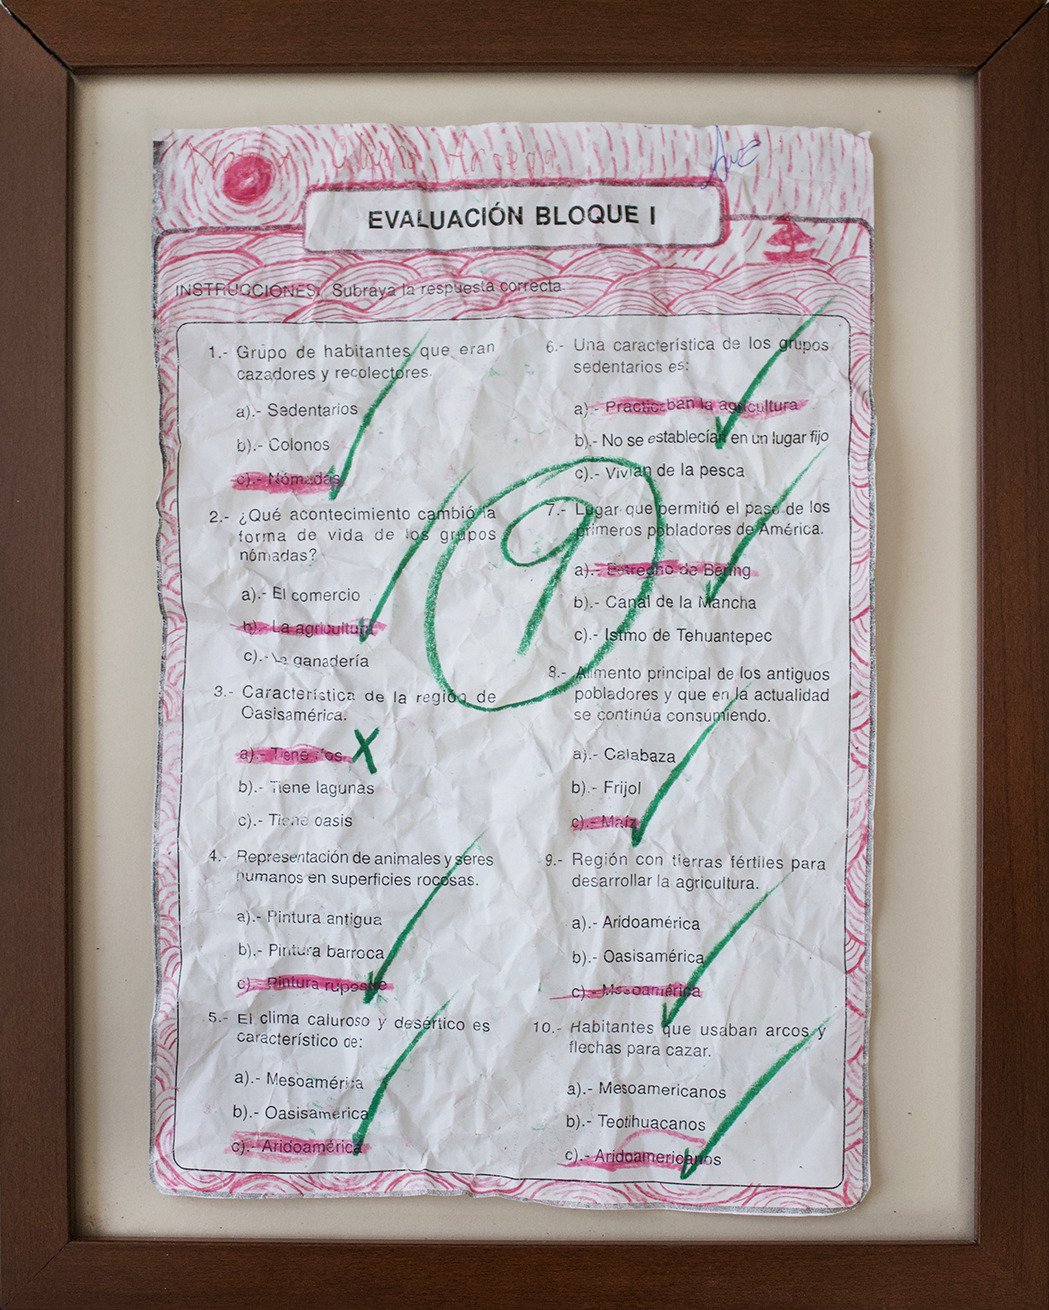 EVALUACIÓN BLOQUE I
INSTRUCCIONES. Subraya la respuesta correcta.
1.- Grupo de habitantes que eran
cazadores y recolectores.
a).- Sedentarios
b).- Colonos
c).- Nómadas
2.- ¿Qué acontecimiento cambió la
forma de vida de los grupos
nómadas?
a).- El comercio
b).- La agricultura
c).- La ganadería
3.- Característica de la región de
Oasisamérica.
a).- Tiene ríos.
X
b).- Tiene lagunas
c).- Tiene oasis
4.- Representación de animales y seres
humanos en superficies rocosas.
a).- Pintura antigua
b).- Pintura barroca
c).- Pintura rupestre
5.- El clima caluroso y desértico es
característico de:
a).- Mesoamérica
b).- Oasisamérica
c).- Aridoamérica
9
6.- Una característica de los grupos
sedentarios es:
a).- Practicaban la agricultura
b).- No se establecían en un lugar fijo
c).- Vivían de la pesca
7.- Lugar que permitió el paso de los
primeros pobladores de América.
a).- Estrecho de Bering
b).- Canal de la Mancha
c).- Istmo de Tehuantepec
8.- Alimento principal de los antiguos
pobladores y que en la actualidad
se continúa consumiendo.
a).- Calabaza
b).- Frijol
c).- Maíz
9.- Región con tierras fértiles para
desarrollar la agricultura.
a).- Aridoamérica
b).- Oasisamérica
c).- Mesoamérica
10.- Habitantes que usaban arcos y
flechas para cazar.
a).- Mesoamericanos
b).- Teotihuacanos
c).- Aridoamericanos